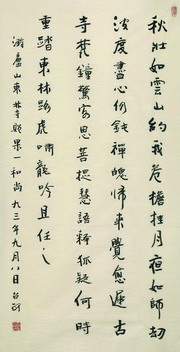 秋壮如雲山約我危檐挂月夜如師劫
波度盡心何禪魄歸來覺愈遲古
寺梵鐘驚客思菩提慧語釋狐疑何時
重踏東林路虎嘯龍吟且任之
游廬山東林寺贈果一和尚九三年九月八日